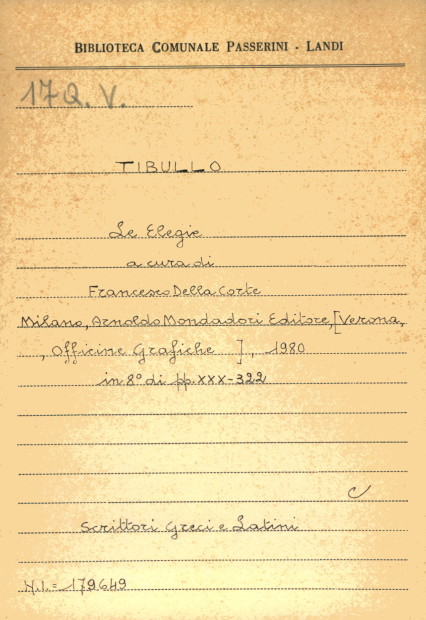 BIBLIOTECA COMUNALE PASSERINI - LANDI
17 Q. V.
TIBULLO
Le Elegie
a cura di
Francesco Della Corte
Milano, Arnoldo Mondadori Editore, [Verona,
, Officine Grafiche ], 1980
in 8° di pp. XXX-322
Scrittori Greci e Latini
N.I. = 179649